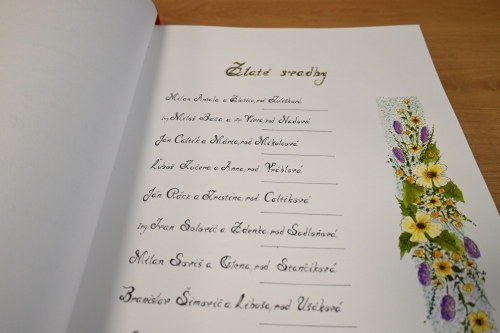 Zlaté svadby
Milan Antala a Zlatica, rod. Zuščíková
Ing. Miloš Bača a Viera, rod. Naďová
Ján Caltík a Mária, rod. Mikulcová
Ľuboš Kučera a Anna, rod. Vráblová
Ján Rácz a Kristína, rod. Caltíková
Ing. Ivan Solovič a Zdenka, rod. Sedlaňová
Milan Soviš a Elena, rod. Stančíková
Branislav Šimovič a Libuša, rod. Ušáková